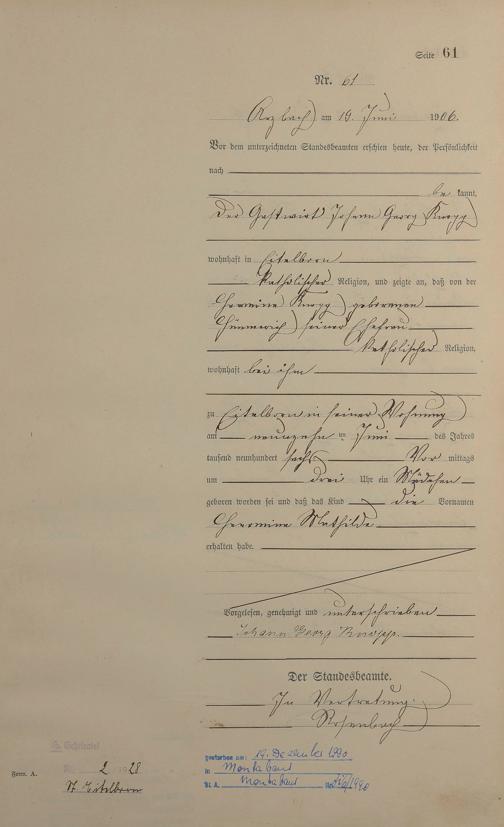 Seite 61
Nr. 61
Arzbach am 19. Juni 1906.
Vor dem unterzeichneten Standesbeamten erschien heute, der Persönlichkeit
nach
be kannt,
der Gastwirt Johann Georg Knopp
wohnhaft in Eitelborn
katholischer Religion, und zeigte an, daß von der
Hermine Knopp geborenen
Hümmerich seiner Ehefrau
katholischer Religion,
wohnhaft bei ihm
zu Eitelborn in seiner Wohnung
am neunzehn ten Juni des Jahres
tausend neunhundert sechs Vor mittags
um drei Uhr ein Mädchen
geboren worden sei und daß das Kind die Vornamen
Hermine Mathilde
erhalten habe.
Vorgelesen, genehmigt und unterschrieben
Johann Georg Knopp.
Der Standesbeamte.
In Vertretung.
Rosenbach
gestorben am: 14. Dezember 1990
in Montabaur
St. A. Montabaur Nr. /1990
2 1928
St. Eitelborn
Form. A.